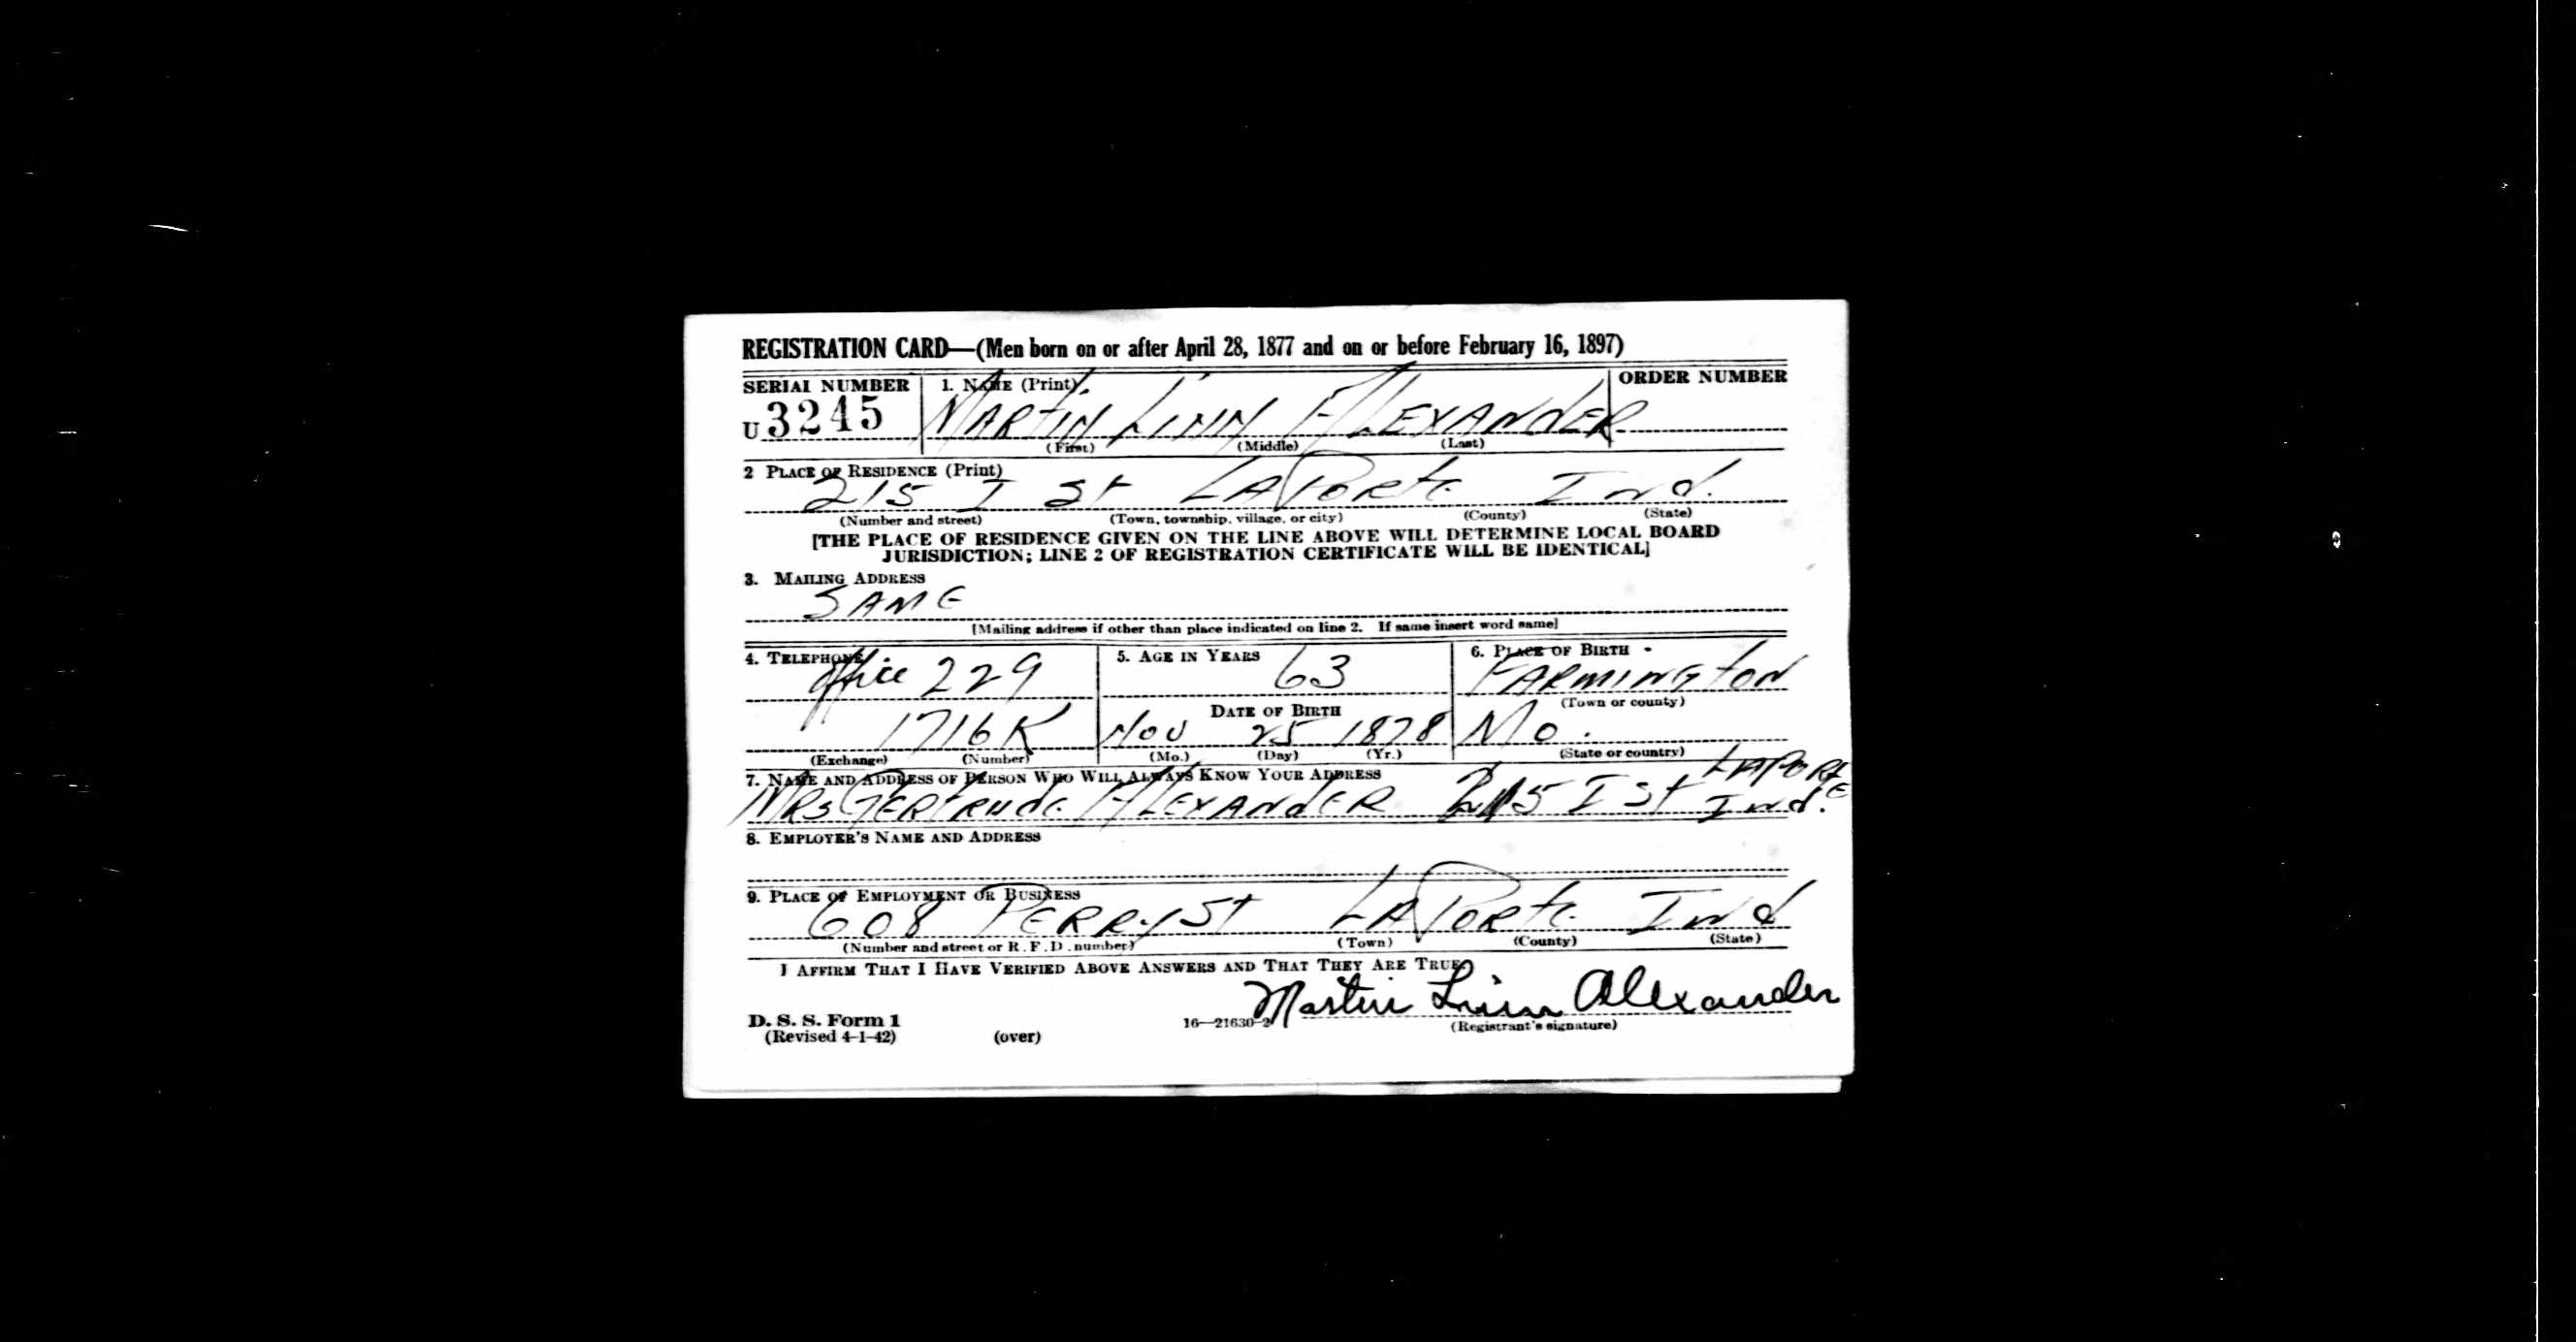 REGISTRATION CARD—(Men born on or after April 28, 1877 and on or before February 16, 1897)
SERIAL NUMBER 1. NAME (Print) ORDER NUMBER
U 3245 MARTIN LINN ALEXANDER
(First) (Middle) (Last)
2 PLACE OF RESIDENCE (Print)
215 I St LAPORTE Ind.
(Number and street) (Town, township, village, or city) (County) (State)
[THE PLACE OF RESIDENCE GIVEN ON THE LINE ABOVE WILL DETERMINE LOCAL BOARD
JURISDICTION; LINE 2 OF REGISTRATION CERTIFICATE WILL BE IDENTICAL]
3. MAILING ADDRESS
SAME
[Mailing address if other than place indicated on line 2. If same insert word same]
4. TELEPHONE 5. AGE IN YEARS 6. PLACE OF BIRTH
office 229 63 FARMINGTON
(Town or county)
DATE OF BIRTH
1716K Nov 25 1878 Mo.
(Exchange) (Number) (Mo.) (Day) (Yr.) (State or country)
7. NAME AND ADDRESS OF PERSON WHO WILL ALWAYS KNOW YOUR ADDRESS
MRS GERTRUDE ALEXANDER 215 I St LAPORTE Ind.
8. EMPLOYER'S NAME AND ADDRESS
9. PLACE OF EMPLOYMENT OR BUSINESS
608 PERRY St LAPORTE Ind
(Number and street or R. F. D. number) (Town) (County) (State)
I AFFIRM THAT I HAVE VERIFIED ABOVE ANSWERS AND THAT THEY ARE TRUE.
Martin Linn Alexander
D. S. S. Form 1 16—21630-2 (Registrant's signature)
(Revised 4-1-42) (over)